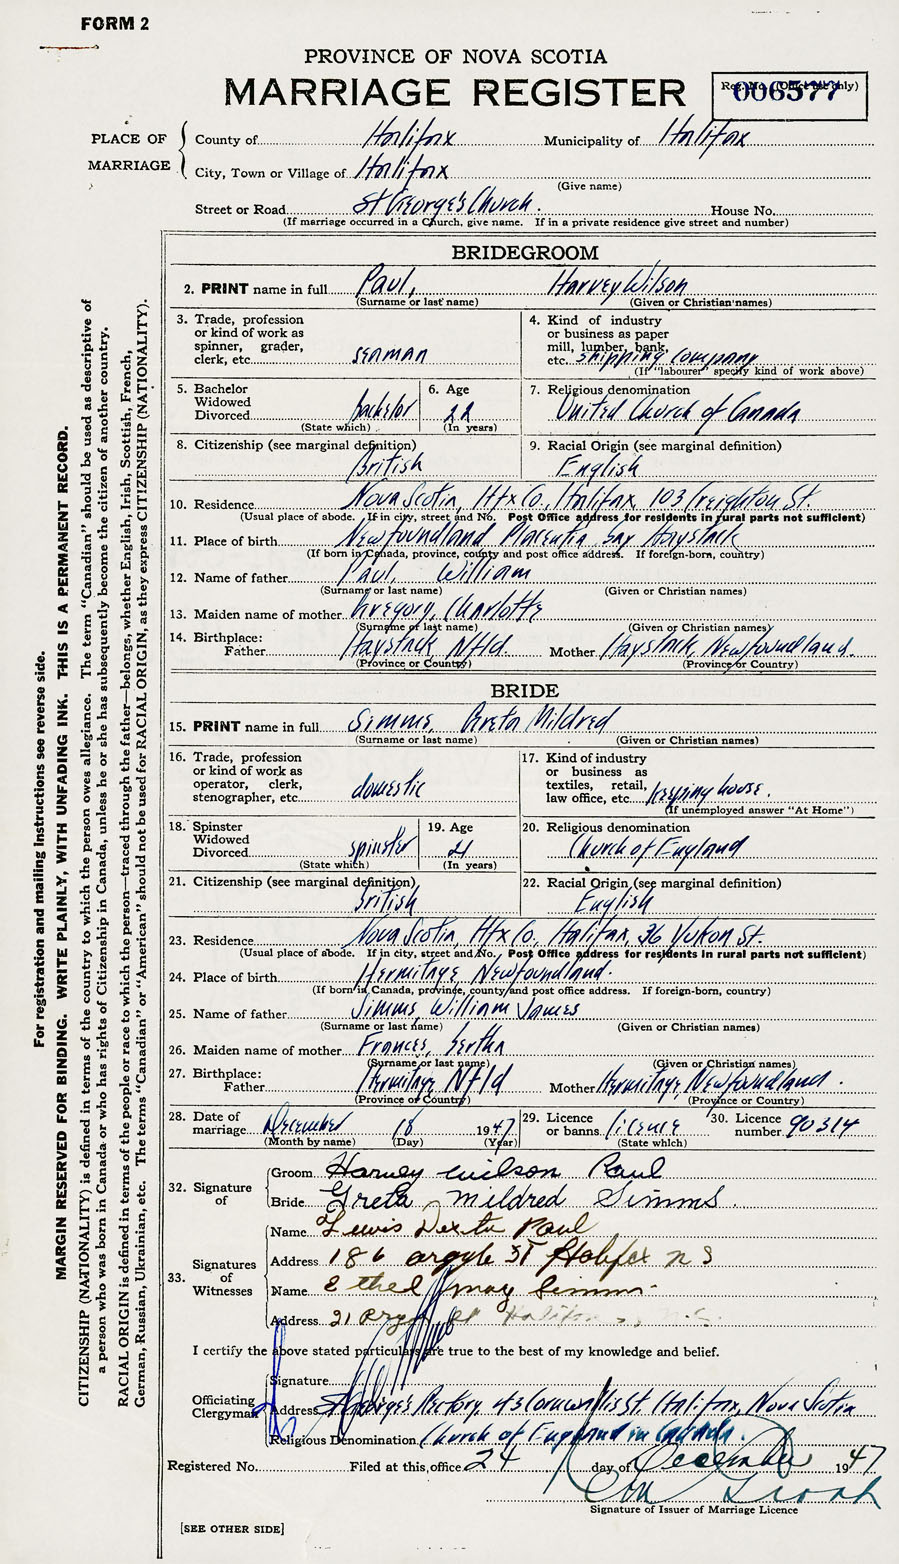 FORM 2
PROVINCE OF NOVA SCOTIA
MARRIAGE REGISTER
Reg. No. (Office use only)
006577
PLACE OF MARRIAGE
County of Halifax Municipality of Halifax
City, Town or Village of Halifax
(Give name)
Street or Road St George's Church. House No.
(If marriage occurred in a Church, give name. If in a private residence give street and number)
BRIDEGROOM
2. PRINT name in full Paul, Harvey Wilson
(Surname or last name) (Given or Christian names)
3. Trade, profession or kind of work as spinner, grader, clerk, etc. seaman
4. Kind of industry or business as paper mill, lumber, bank, etc. shipping company
(If "labourer" specify kind of work above)
5. Bachelor Widowed Divorced bachelor
(State which)
6. Age 22
(In years)
7. Religious denomination United Church of Canada
8. Citizenship (see marginal definition) British
9. Racial Origin (see marginal definition) English
10. Residence Nova Scotia, Hfx Co., Halifax, 103 Creighton St.
(Usual place of abode. If in city, street and No. Post Office address for residents in rural parts not sufficient)
11. Place of birth Newfoundland Placentia Bay Haystack
(If born in Canada, province, county and post office address. If foreign-born, country)
12. Name of father Paul, William
(Surname or last name) (Given or Christian names)
13. Maiden name of mother Gregory, Charlotte
(Surname or last name) (Given or Christian names)
14. Birthplace: Father Haystack, Nfld. Mother Haystack, Newfoundland.
(Province or Country) (Province or Country)
BRIDE
15. PRINT name in full Simms, Greta Mildred
(Surname or last name) (Given or Christian names)
16. Trade, profession or kind of work as operator, clerk, stenographer, etc. domestic
17. Kind of industry or business as textiles, retail, law office, etc. keeping house.
(If unemployed answer "At Home")
18. Spinster Widowed Divorced spinster
(State which)
19. Age 21
(In years)
20. Religious denomination Church of England
21. Citizenship (see marginal definition) British
22. Racial Origin (see marginal definition) English
23. Residence Nova Scotia, Hfx Co., Halifax, 36 Yukon St.
(Usual place of abode. If in city, street and No. Post Office address for residents in rural parts not sufficient)
24. Place of birth Hermitage, Newfoundland.
(If born in Canada, province, county and post office address. If foreign-born, country)
25. Name of father Simms, William James
(Surname or last name) (Given or Christian names)
26. Maiden name of mother Frances, Bertha
(Surname or last name) (Given or Christian names)
27. Birthplace: Father Hermitage, Nfld Mother Hermitage, Newfoundland.
(Province or Country) (Province or Country)
28. Date of marriage December 18 1947
(Month by name) (Day) (Year)
29. Licence or banns licence
(State which)
30. Licence number 90314
32. Signature of
Groom Harvey Wilson Paul
Bride Greta Mildred Simms.
33. Signatures of Witnesses
Name Lewis Dexter Paul
Address 186 argyle St Halifax n s
Name Ethel may Simms
Address 21 St Halifax N.S.
I certify the above stated particulars are true to the best of my knowledge and belief.
Officiating Clergyman
Signature
Address St George's Rectory, 43 Cornwallis St. Halifax, Nova Scotia
Religious Denomination Church of England in Canada.
Registered No. Filed at this office 24 day of December 1947
Signature of Issuer of Marriage Licence
[SEE OTHER SIDE]
For registration and mailing instructions see reverse side.
MARGIN RESERVED FOR BINDING. WRITE PLAINLY, WITH UNFADING INK. THIS IS A PERMANENT RECORD.
CITIZENSHIP (NATIONALITY) is defined in terms of the country to which the person owes allegiance. The term "Canadian" should be used as descriptive of
a person who was born in Canada or who has rights of Citizenship in Canada, unless he or she has subsequently become the citizen of another country.
RACIAL ORIGIN is defined in terms of the people or race to which the person—traced through the father—belongs, whether English, Irish, Scottish, French,
German, Russian, Ukrainian, etc. The terms "Canadian" or "American" should not be used for RACIAL ORIGIN, as they express CITIZENSHIP (NATIONALITY).